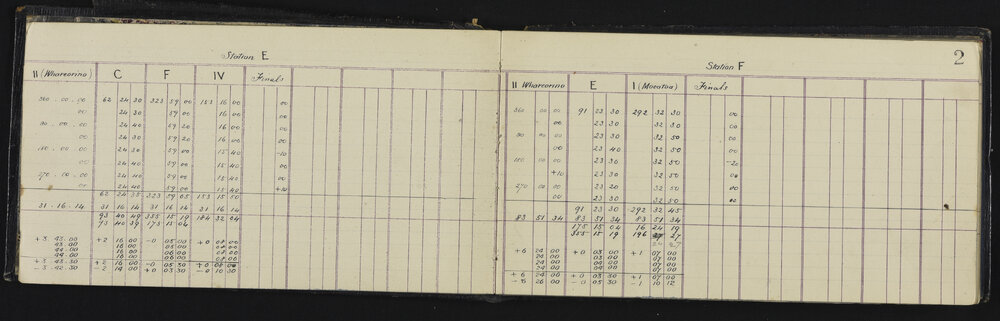 Station E
II (Whareorino) C F IV Finals
360 . 00 . 00 62 24 30 323 59 00 153 16 00 00
00 24 30 59 00 16 00 00
90 . 00 . 00 24 40 59 20 16 00 00
00 24 30 59 20 16 00 00
180 . 00 . 00 24 30 59 00 15 40 -10
00 24 40 59 00 15 40 00
270 . 00 . 00 24 40 59 00 15 40 00
24 40 59 00 15 40 +10
62 24 35 323 59 05 153 15 50
31 . 16 . 14 31 16 14 31 16 14 31 16 14
93 40 49 355 15 19 184 32 04
93 40 39 175 15 04
+3 43.00 +2 16 00 -0 05 00 +0 08 00
43.00 16 00 05 00 08 00
44.00 16 00 06 00 08 00
44.00 16 00 06 00 08 00
+3 43.30 +2 16 00 -0 05 30 +0 08 00
-3 42.30 -2 14 00 +0 03 30 -0 10 30
2
Station F
II Whareorino E I (Moeatoa) Finals
360 00 00 91 23 30 292 32 30 00
00 23 30 32 30 00
90 00 00 23 30 32 50 00
00 23 40 32 50 00
180 00 00 23 30 32 50 -20
+10 23 30 32 50 00
270 00 00 23 20 32 50 00
00 23 30 32 50 00
91 23 30 292 32 45
83 51 34 83 51 34 83 51 34
175 15 04 16 24 19
355 15 19 196 27
24 27
+6 24 00 +0 03 00 +1 07 00
24 00 03 00 07 00
24 00 04 00 07 00
24 00 04 00 07 00
+6 24 00 +0 03 30 +1 07 00
-6 26 00 -0 05 30 -1 10 12